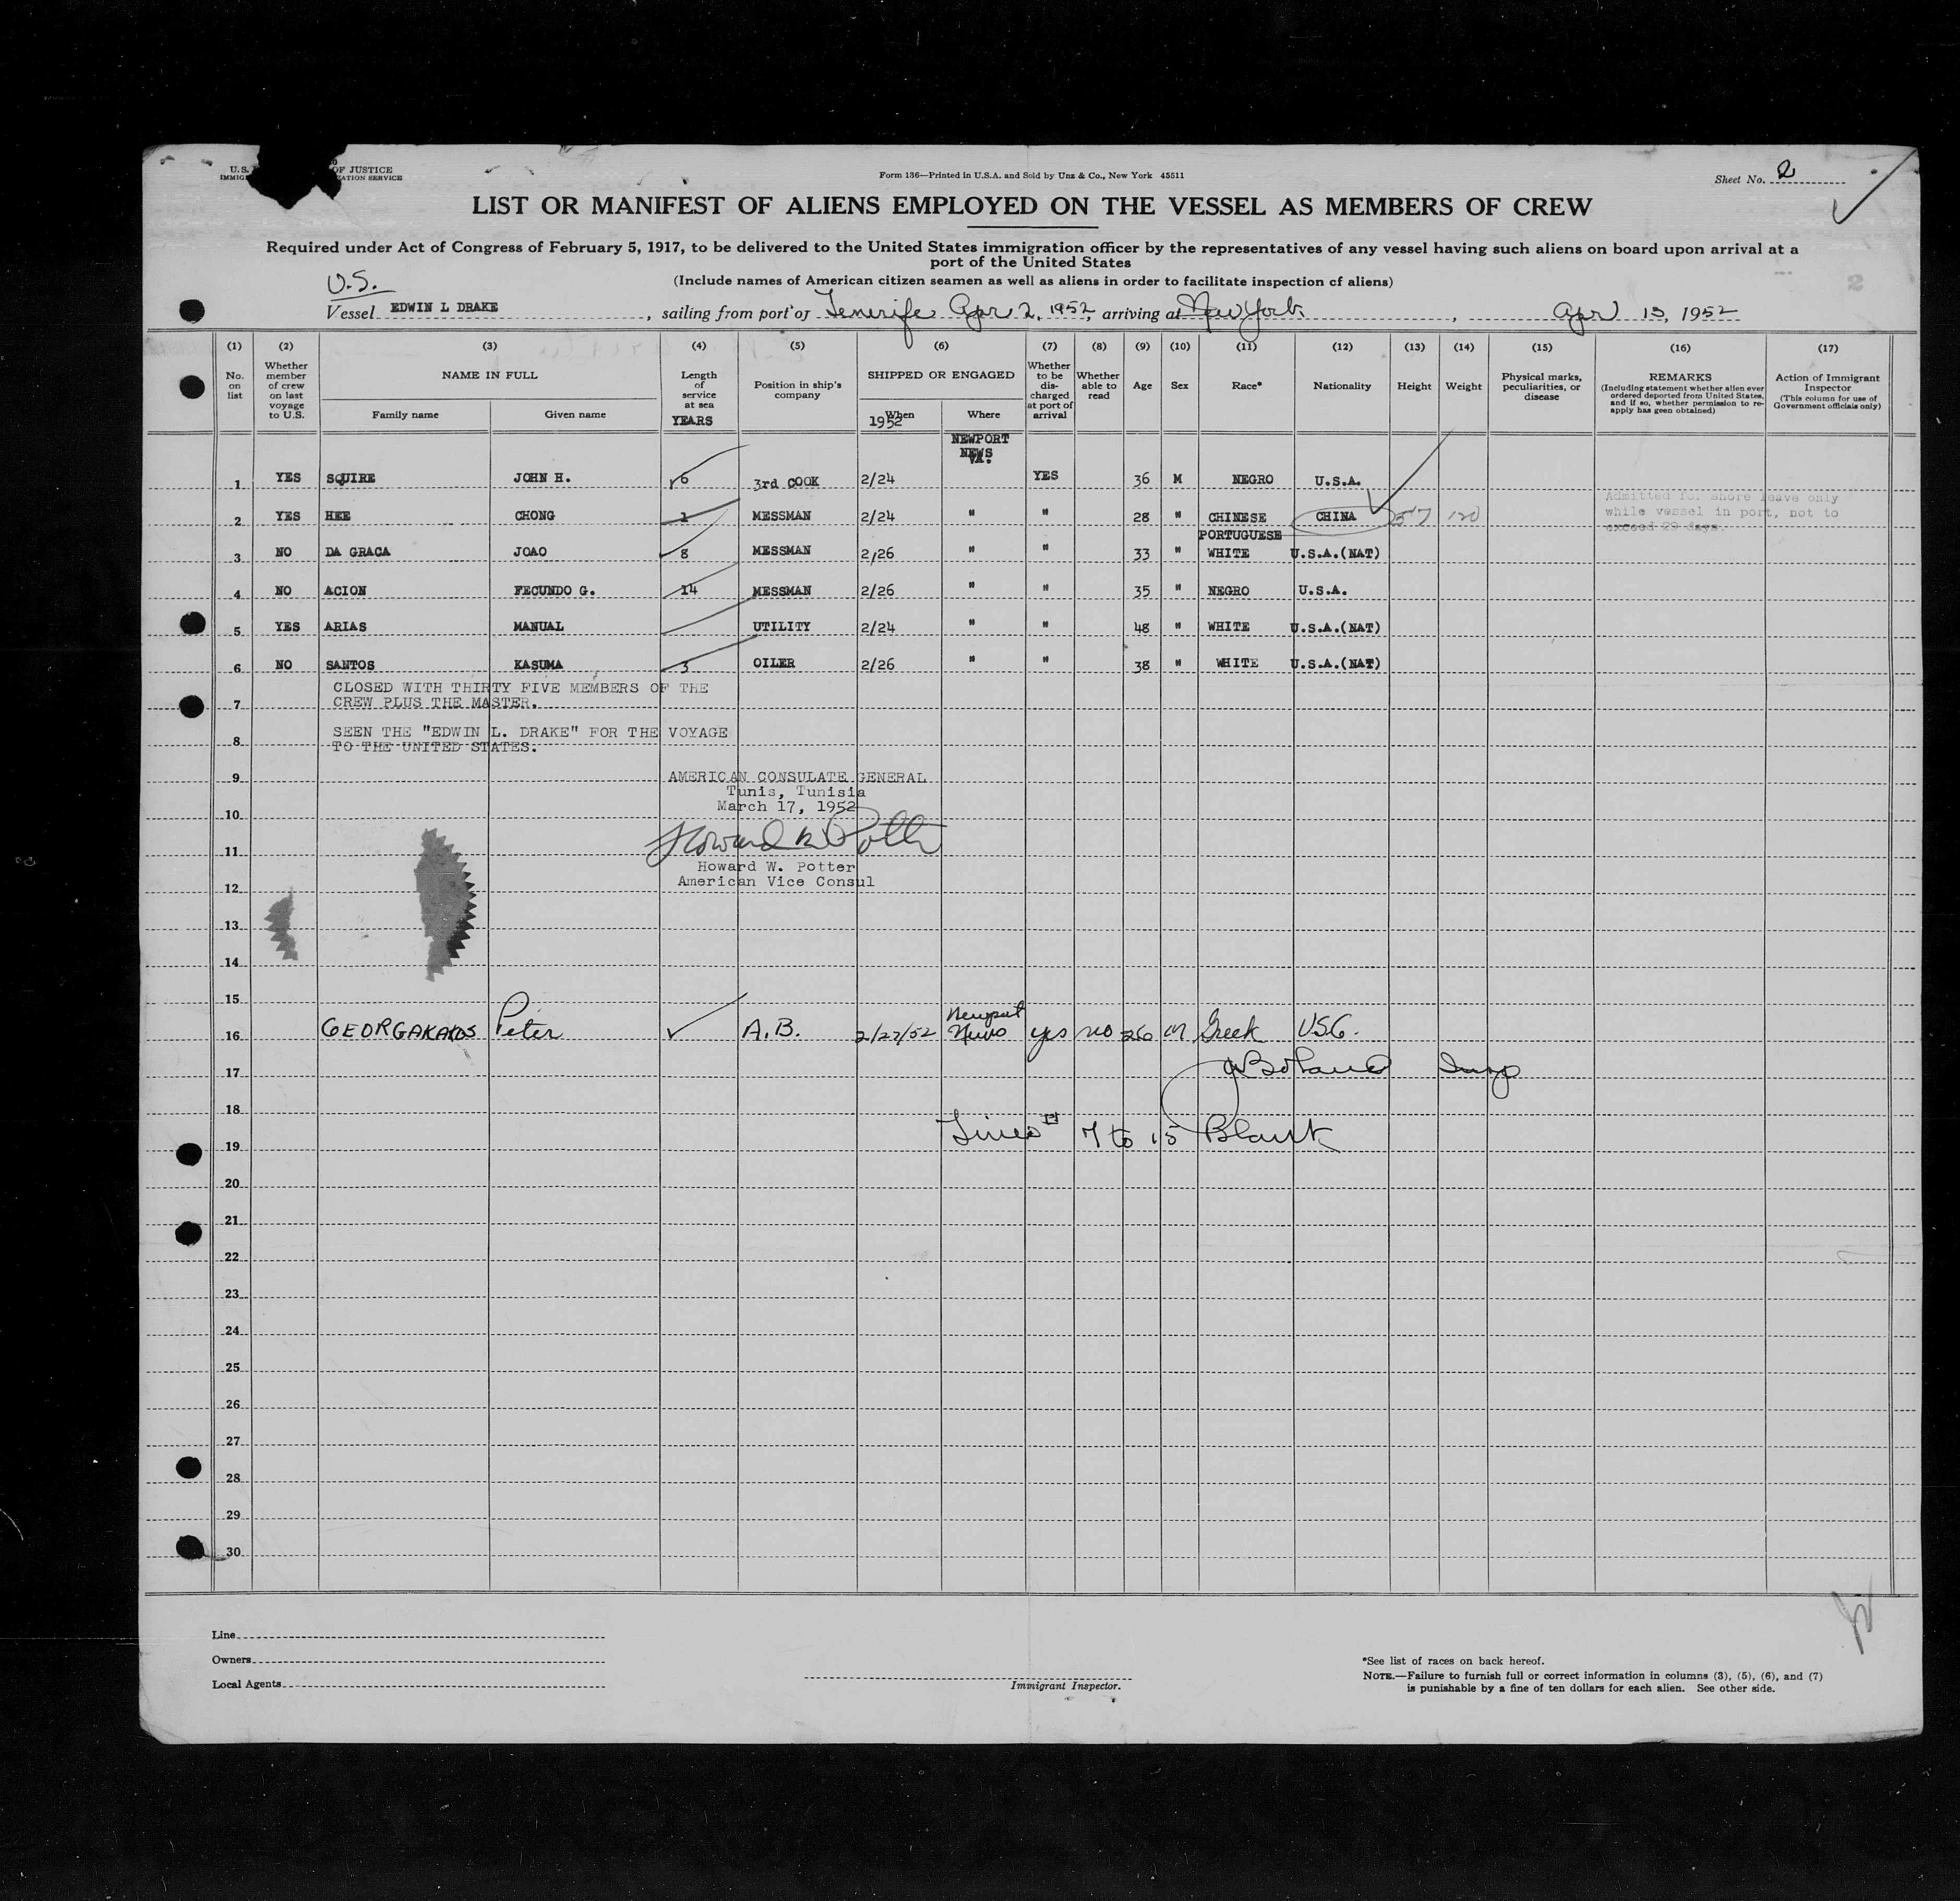 U.S. OF JUSTICE
IMMIG ATION SERVICE
Form 136—Printed in U.S.A. and Sold by Unz & Co., New York 45511
Sheet No. 2
LIST OR MANIFEST OF ALIENS EMPLOYED ON THE VESSEL AS MEMBERS OF CREW
Required under Act of Congress of February 5, 1917, to be delivered to the United States immigration officer by the representatives of any vessel having such aliens on board upon arrival at a
port of the United States
(Include names of American citizen seamen as well as aliens in order to facilitate inspection of aliens)
2
U.S.
Vessel EDWIN L DRAKE, sailing from port of Tenerife Apr 2, 1952, arriving at New York, Apr 13, 1952
(1) (2) (3) (4) (5) (6) (7) (8) (9) (10) (11) (12) (13) (14) (15) (16) (17)
No. on list
Whether member of crew on last voyage to U.S.
NAME IN FULL
Family name Given name
Length of service at sea
YEARS
Position in ship's company
SHIPPED OR ENGAGED
When Where
1952
Whether to be dis-charged at port of arrival
Whether able to read
Age Sex Race* Nationality Height Weight
Physical marks, peculiarities, or disease
REMARKS
(Including statement whether alien ever ordered deported from United States, and if so, whether permission to re-apply has geen obtained)
Action of Immigrant Inspector
(This column for use of Government officials only)
NEWPORT
NEWS
VA.
1 YES SQUIRE JOHN H. 6 3rd COOK 2/24 YES 36 M NEGRO U.S.A.
Admitted for shore leave only
while vessel in port, not to
exceed 29 days.
2 YES HEE CHONG 1 MESSMAN 2/24 " " 28 " CHINESE CHINA 5'7 120
PORTUGUESE
3 NO DA GRACA JOAO 8 MESSMAN 2/26 " " 33 " WHITE U.S.A.(NAT)
4 NO ACION FECUNDO G. 14 MESSMAN 2/26 " " 35 " NEGRO U.S.A.
5 YES ARIAS MANUAL UTILITY 2/24 " " 48 " WHITE U.S.A.(NAT)
6 NO SANTOS KASUMA 3 OILER 2/26 " " 38 " WHITE U.S.A.(NAT)
CLOSED WITH THIRTY FIVE MEMBERS OF THE
7 CREW PLUS THE MASTER.
SEEN THE "EDWIN L. DRAKE" FOR THE VOYAGE
8 TO THE UNITED STATES.
9 AMERICAN CONSULATE GENERAL
Tunis, Tunisia
10 March 17, 1952
11 Howard W. Potter
Howard W. Potter
12 American Vice Consul
13
14
15
Newport
16 GEORGAKAKOS Peter A.B. 2/27/52 News yes no 26 m Greek USC.
17 Insp
18
19 Lines 7 to 15 Blank
20
21
22
23
24
25
26
27
28
29
30
Line
Owners
Local Agents
Immigrant Inspector.
*See list of races on back hereof.
NOTE.—Failure to furnish full or correct information in columns (3), (5), (6), and (7)
is punishable by a fine of ten dollars for each alien. See other side.